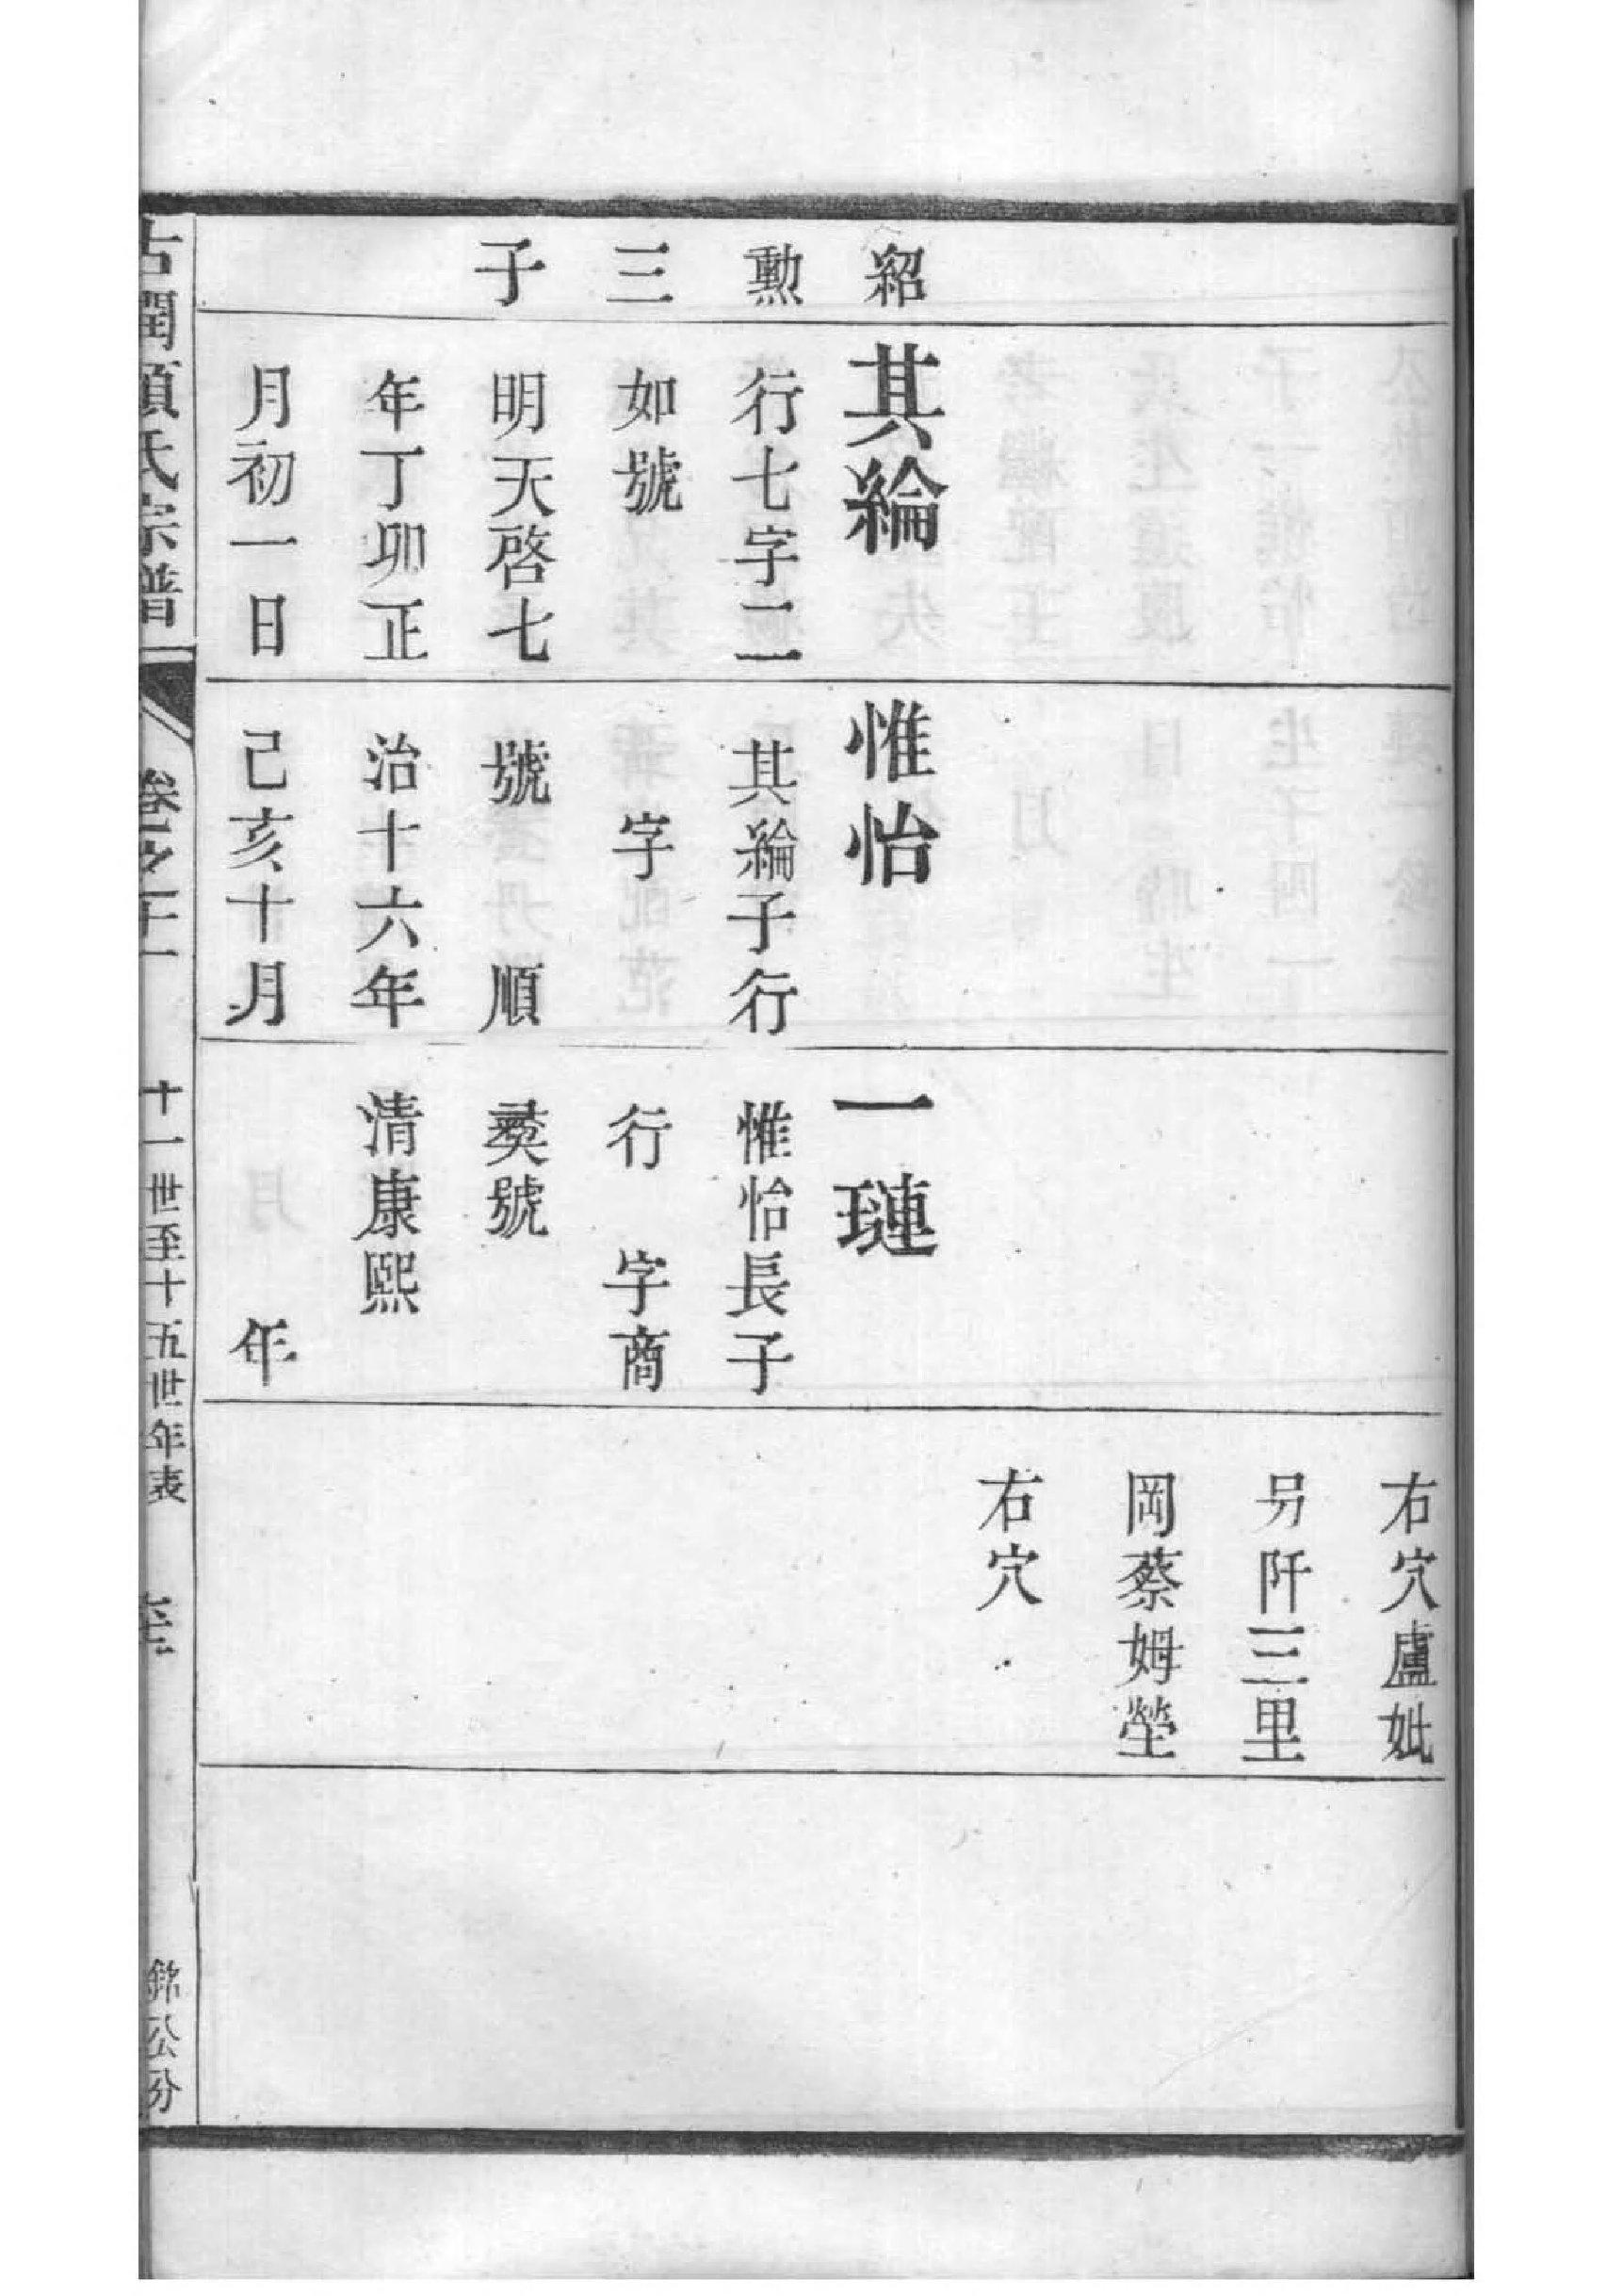 右穴盧妣
另阡三里
岡蔡姆塋
右穴
紹勲三子
其綸
行七字二
如號
明天啓七
年丁卯正
月初一日
惟怡
其綸子行
字
號 順
治十六年
己亥十月
一璉
惟怡長子
行 字商
彛號
清康熙
年
古潤順氏宗譜
卷之二十一
十一世至十五世年表
錦公分